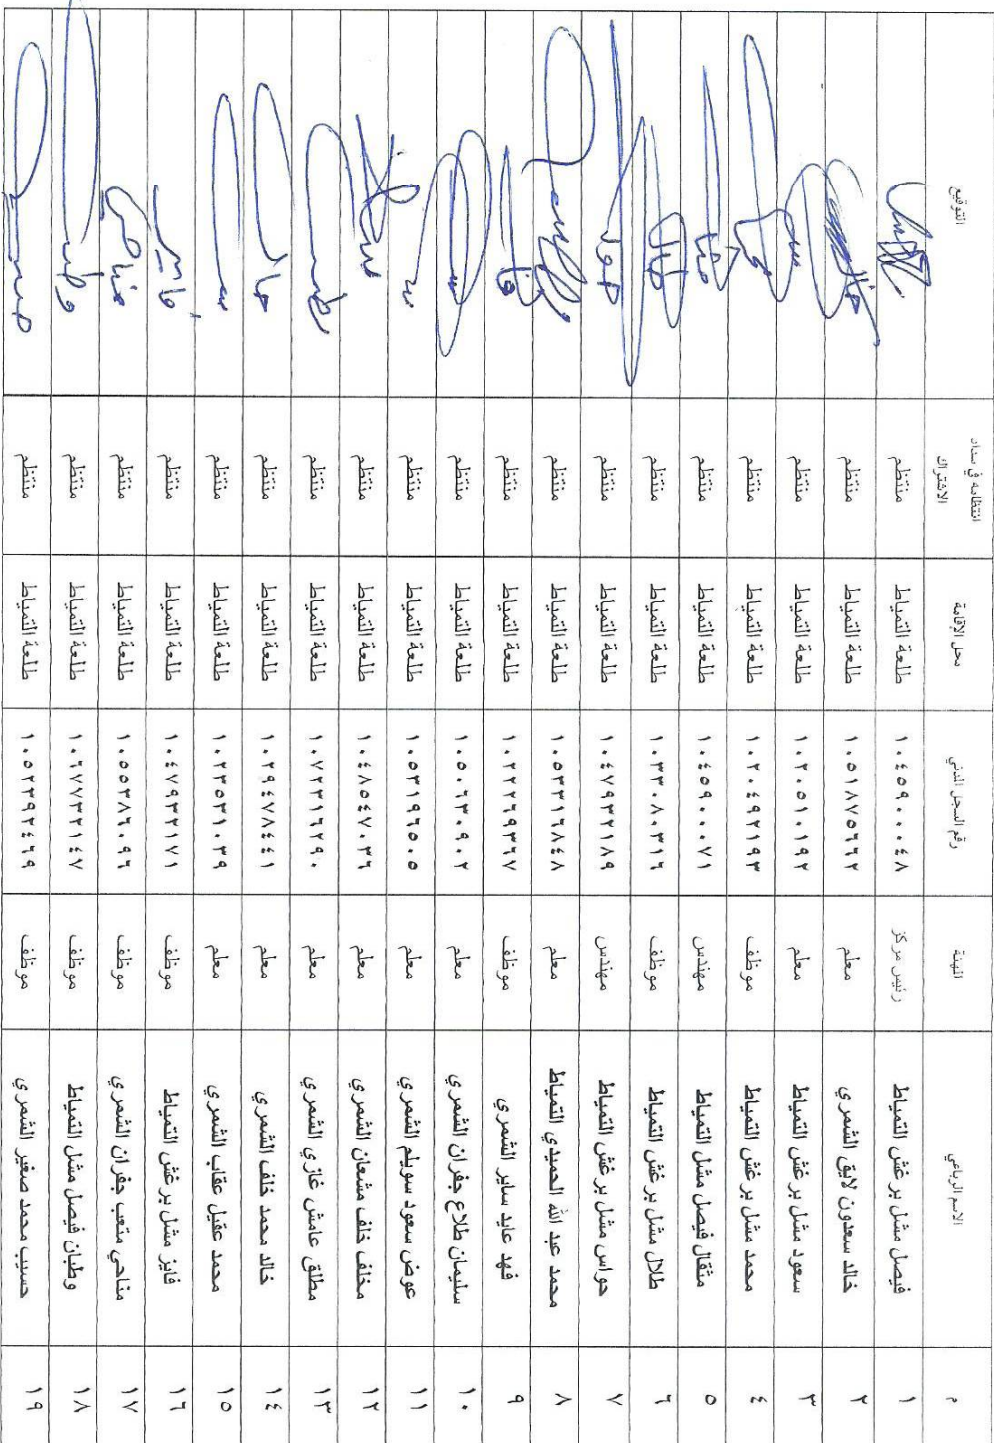 م الاسم الرباعي المهنة رقم السجل المدني محل الإقامة انتظامه في سداد الاشتراك التوقيع
١ فيصل مشل برغش التمياط رئيس مركز ١٠٤٥٩٠٠٠٤٨ طلعة التمياط منتظم
٢ خالد سعدون لايق الشمري معلم ١٠٥١٨٧٥٦٦٢ طلعة التمياط منتظم
٣ سعود مشل برغش التمياط معلم ١٠٢٠٥١٠١٩٢ طلعة التمياط منتظم
٤ محمد مشل برغش التمياط موظف ١٠٢٠٤٩٢١٩٣ طلعة التمياط منتظم
٥ مثقال فيصل مشل التمياط مهندس ١٠٤٥٩٠٠٠٧١ طلعة التمياط منتظم
٦ طلال مشل برغش التمياط موظف ١٠٣٣٠٨٠٣١٦ طلعة التمياط منتظم
٧ حواس مشل برغش التمياط مهندس ١٠٤٧٩٣٢١٨٩ طلعة التمياط منتظم
٨ محمد عبد الله الحميدي التمياط معلم ١٠٥٣٣١٦٨٤٨ طلعة التمياط منتظم
٩ فهد عايد ساير الشمري موظف ١٠٢٢٢٦٩٣٦٧ طلعة التمياط منتظم
١٠ سليمان طلاع جفران الشمري معلم ١٠٥٠٦٣٠٩٠٢ طلعة التمياط منتظم
١١ عوض سعود سويلم الشمري معلم ١٠٥٣١٩٦٥٠٥ طلعة التمياط منتظم
١٢ مخلف خلف مشعان الشمري معلم ١٠٤٨٥٤٧٠٣٦ طلعة التمياط منتظم
١٣ مطلق عامش غازي الشمري معلم ١٠٧٢٣١٦٢٩٠ طلعة التمياط منتظم
١٤ خالد محمد خلف الشمري معلم ١٠٢٩٤٧٨٤٤١ طلعة التمياط منتظم
١٥ محمد عقيل عقاب الشمري معلم ١٠٢٣٥٣١٠٣٩ طلعة التمياط منتظم
١٦ فايز مشل برغش التمياط موظف ١٠٤٧٩٣٢١٧١ طلعة التمياط منتظم
١٧ مناحي متعب جفران الشمري موظف ١٠٥٥٣٨٦٠٩٦ طلعة التمياط منتظم
١٨ وطبان فيصل مشل التمياط موظف ١٠٦٧٧٣٢١٤٧ طلعة التمياط منتظم
١٩ حسيب محمد صغير الشمري موظف ١٠٥٢٣٩٢٤٦٩ طلعة التمياط منتظم